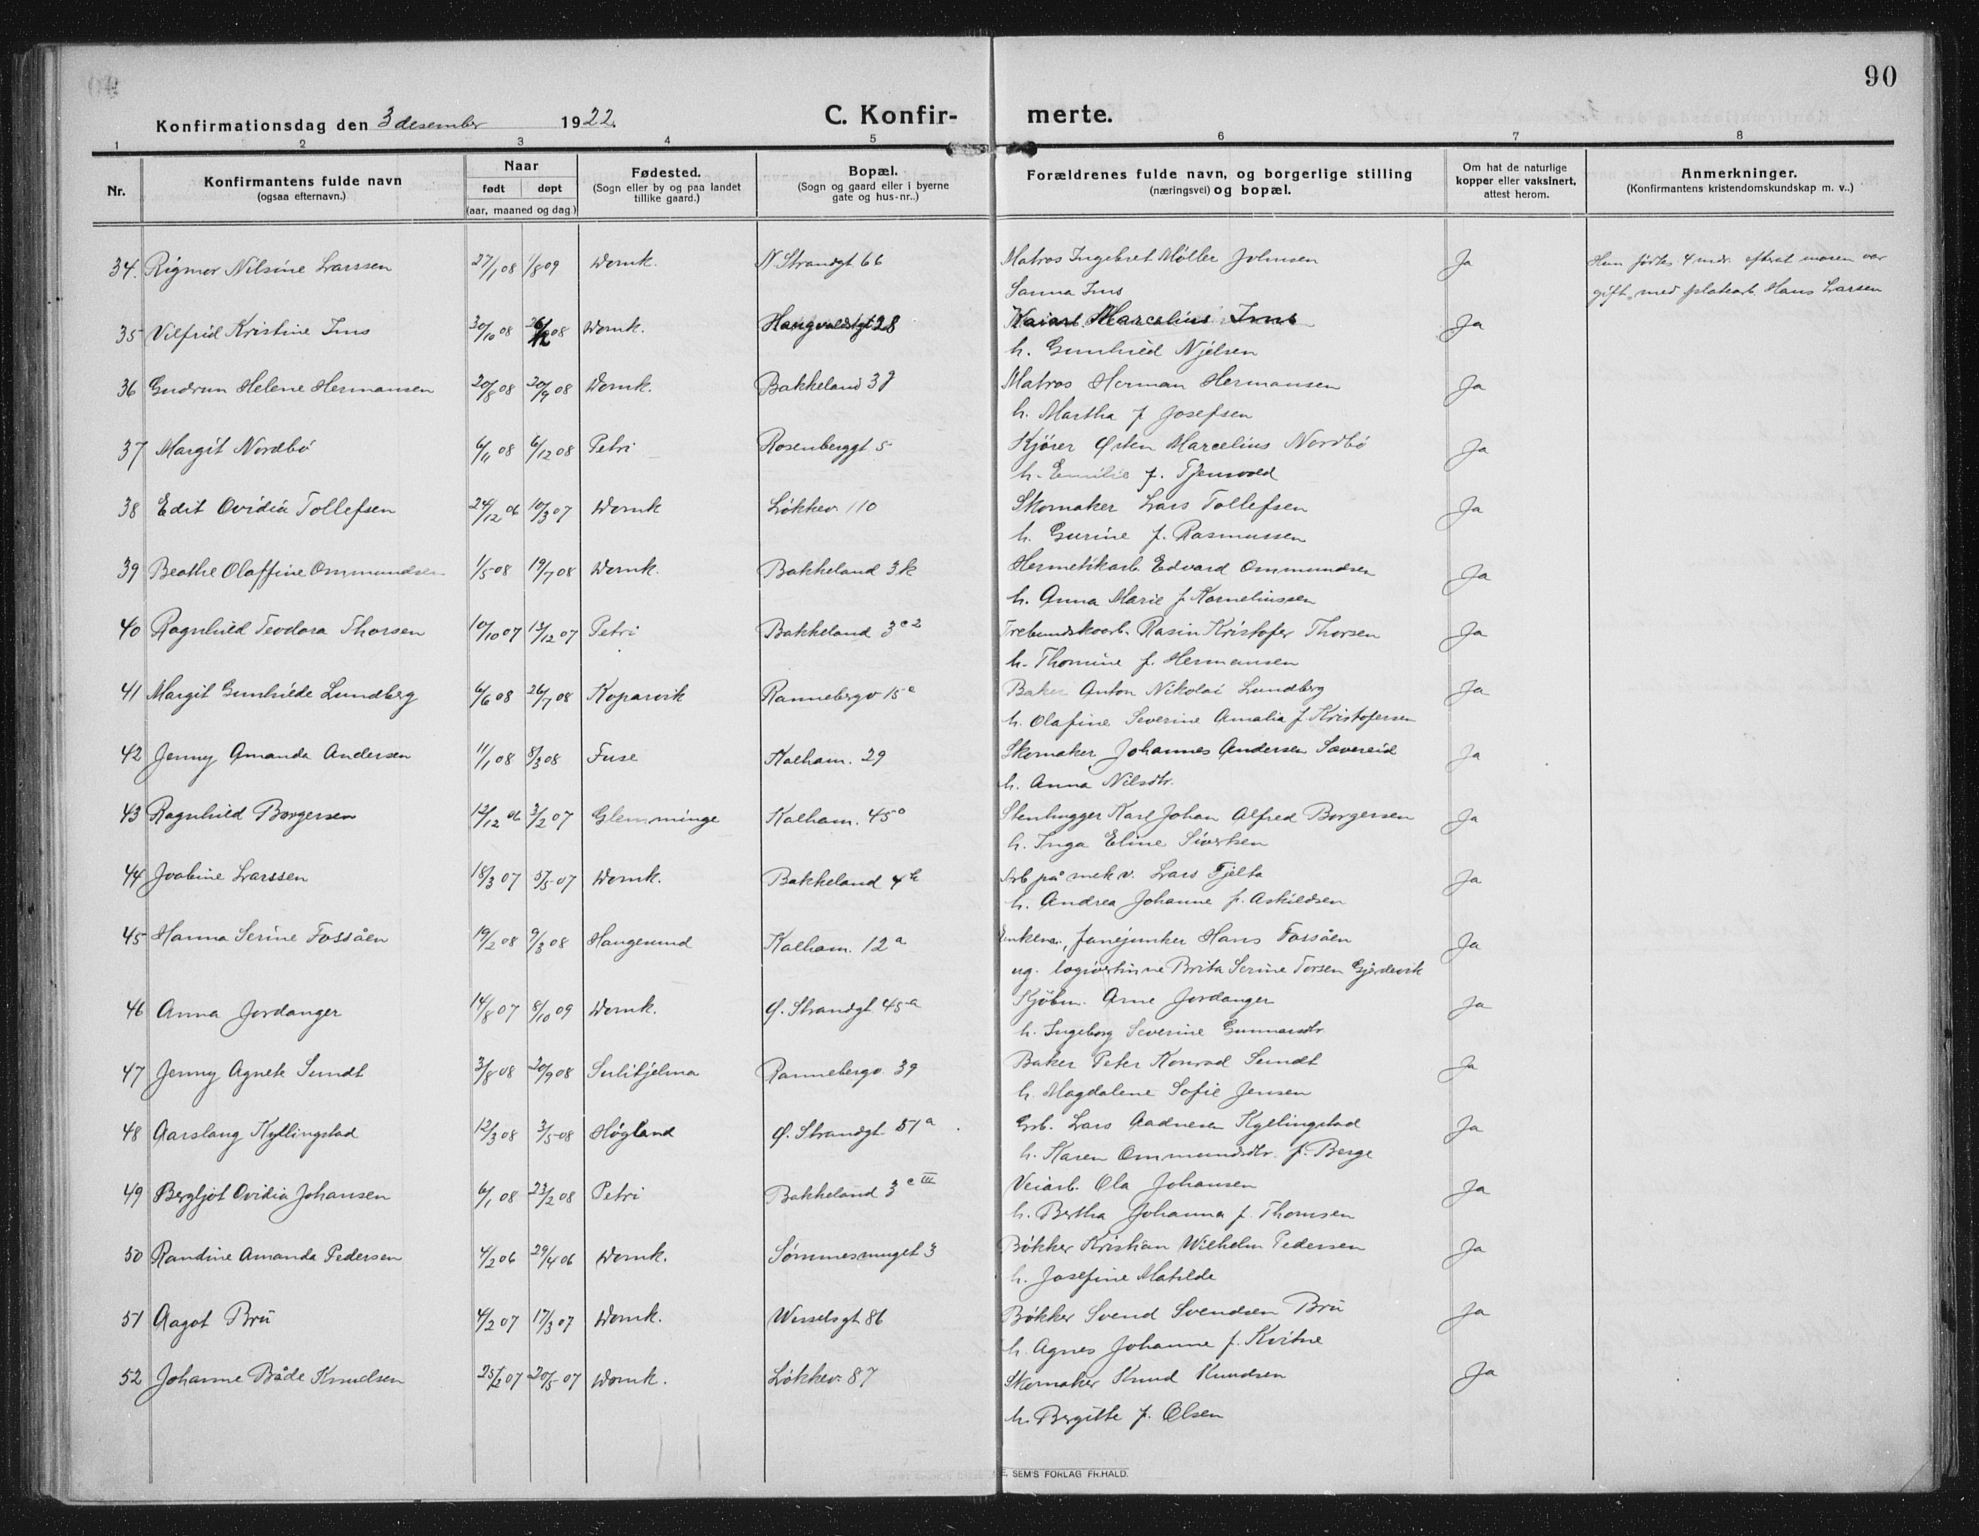 90
Konfirmationsdag den 3 desember 1922.
C. Konfir- merte.
1 2 3 4 5 6 7 8
Nr.
Konfirmantens fulde navn
(ogsaa efternavn.)
Naar
født døpt
(aar, maaned og dag)
Fødested.
(Sogn eller by og paa landet
tillike gaard.)
Bopæl.
(Sogn og gaard eller i byerne
gate og hus-nr..)
Forældrenes fulde navn, og borgerlige stilling
(næringsvei) og bopæl.
Om hat de naturlige
kopper eller vaksinert,
attest herom.
Anmerkninger.
(Konfirmantens kristendomskundskap m. v..)
34. Rigmor Nilsine Larssen 27/1 08 1/8 09 Domk. N. Strandgt 66 Matros Ingebret Møller Johnsen Ja Hun fødtes 4 mdr. efterat moren var
Sanna Ims gift med platearb. Hans Larsen
35 Vilfrid Kristine Ims 30/10 08 26/12 08 Domk. Haugvaldstgt 28 Marcelius Ims Ja
h. Gunhild Njelsen
36 Gudrun Helene Hermansen 20/8 08 20/9 08 Domk. Bakkeland 3 Matros Herman Hermansen Ja
h. Martha f. Josefsen
37 Margit Nordbø 6/11 08 6/12 08 Petri Rosenberggt 5 Kjører Østen Marcelius Nordbø Ja
h. Emilie f. Tjensvold
38 Edit Ovidia Tollefsen 24/12 06 10/3 07 Domk Løkkev. 110 Skomaker Lars Tollefsen Ja
h. Gurine f. Rasmussen
39 Beathe Olaffine Ommundsen 1/5 08 19/7 08 Domk. Bakkeland 3k Hermetikarb. Edvard Ommundsen Ja
h. Anna Marie f. Kornelinssen
40 Ragnhild Teodora Thorsen 10/10 07 13/12 07 Petri Bakkeland 3 c 2 Rasin Kristofer Thorsen Ja
h. Thomine f. Hermansen
41 Margit Gunhilde Lundberg 6/6 08 26/7 08 Kopervik Rannebergv 15 a Baker Anton Nikolai Lundberg Ja
h. Olafine Severine Amalia f. Kristofersen
42 Jenny Amanda Andersen 11/1 08 8/3 08 Fuse Kalham. 29 Skomaker Johannes Andersen Sævereid Ja
h. Anna Nilsdtr.
43 Ragnhild Borgersen 12/12 06 3/2 07 Glemminge Kalham. 45 a Stenhugger Karl Johan Alfred Borgersen Ja
h. Inga Eline Sivertsen
44 Joabine Larssen 18/3 07 5/5 07 Domk. Bakkeland 4 h Arb på mek v. Lars Fjelta Ja
h. Andrea Johanne f. Askildsen
45 Hanna Serine Fossåen 19/2 08 9/3 08 Haugesund Kalham. 12 a Enkem., fanejunker Hans Fossåen Ja
ug. logivertinne Brita Serine Torsen Gjerdevik
46 Anna Jordanger 14/8 07 8/10 09 Domk. Ø. Strandgt 45 a Kjøbm. Arne Jordanger Ja
h. Ingeborg Severine Gunnarsdtr.
47 Jenny Agnete Sundt 3/8 08 20/9 08 Sulitjelma Rannebergv. 39 Baker Peter Konrad Sundt Ja
h. Magdalene Sofie Jensen
48 Aarslaug Kyllingstad 12/3 08 3/5 08 Høgland Ø. Strandgt 51 a Grb. Lars Aadnesen Kyllingstad Ja
h. Karen Ommundsdtr. f. Berge
49 Bergljot Ovidia Johansen 6/1 08 23/2 08 Petri Bakkeland 3 c III Veiarb. Ola Johansen Ja
h. Bertha Johanna f. Thomsen
50 Randine Amanda Pedersen 4/2 06 29/4 06 Domk. Sømmesmuget 3 Bøkker Kristian Wilhelm Pedersen Ja
h. Josefine Matilde
51 Aagot Bru 4/2 07 17/3 07 Domk. Wesselsgt 86 Bøkker Svend Svendsen Bru Ja
h. Agnes Johanne f. Kvitne
52 Johanne Både Knudsen 25/2 07 20/5 07 Domk. Løkkev. 87 Skomaker Knud Knudsen Ja
h. Bergitte f. Olsen
E. SEM'S FORLAG FR.HALD.